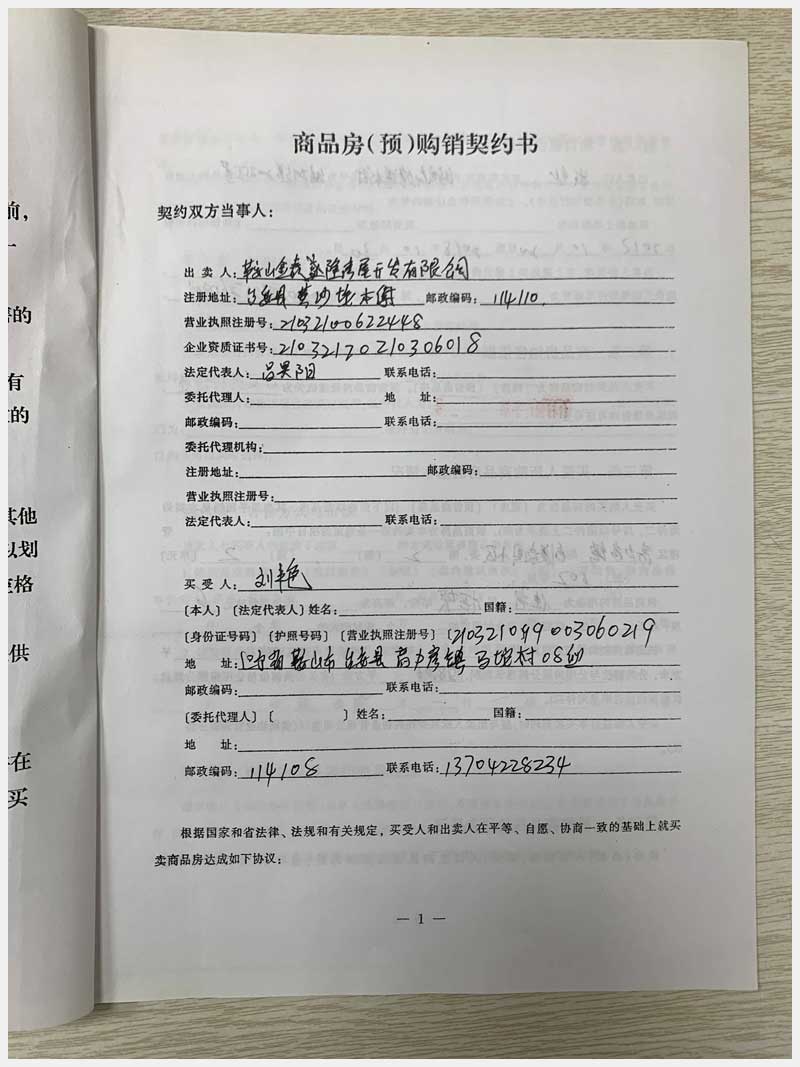 商品房(预)购销契约书
契约双方当事人:
出 卖 人: 鞍山 房屋开发有限公司
注册地址: 台安县黄沙坨 邮政编码: 114110
营业执照注册号: 21032100622448
企业资质证书号:
法定代表人: 联系电话:
委托代理人: 地 址:
邮政编码: 联系电话:
委托代理机构:
注册地址: 邮政编码:
营业执照注册号:
法定代表人: 联系电话:
买 受 人: 刘艳
〔本人〕〔法定代表人〕姓名: 国籍:
〔身份证号码〕〔护照号码〕〔营业执照注册号〕
地 址: 辽宁省鞍山市台安县高力房镇 村
邮政编码: 联系电话:
〔委托代理人〕〔 〕姓名: 国籍:
地 址:
邮政编码: 114108 联系电话: 13704228234
根据国家和省法律、法规和有关规定,买受人和出卖人在平等、自愿、协商一致的基础上就买
卖商品房达成如下协议:
— 1 —
前,
一
的
有
的
其他
以划
格
供
在
买